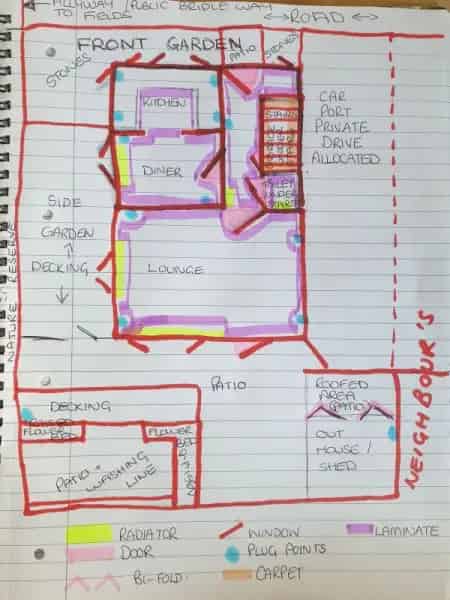 ALLYWAY / PUBLIC BRIDLE WAY
TO FIELDS
ROAD
FRONT GARDEN
PATIO
STONES
STONES
KITCHEN
STAIRS
CAR
PORT
PRIVATE
DRIVE
ALLOCATED
DINER
TOILET
UNDER
STAIRS
SIDE
GARDEN
DECKING
LOUNGE
NATURE RESERVE
NEIGHBOUR'S
PATIO
ROOFED
AREA
(PATIO)
DECKING
FLOWER
BED
FLOWER
BED
OUT
HOUSE /
SHED
PATIO +
WASHING
LINE
RADIATOR
WINDOW
LAMINATE
DOOR
PLUG POINTS
BI-FOLD
CARPET